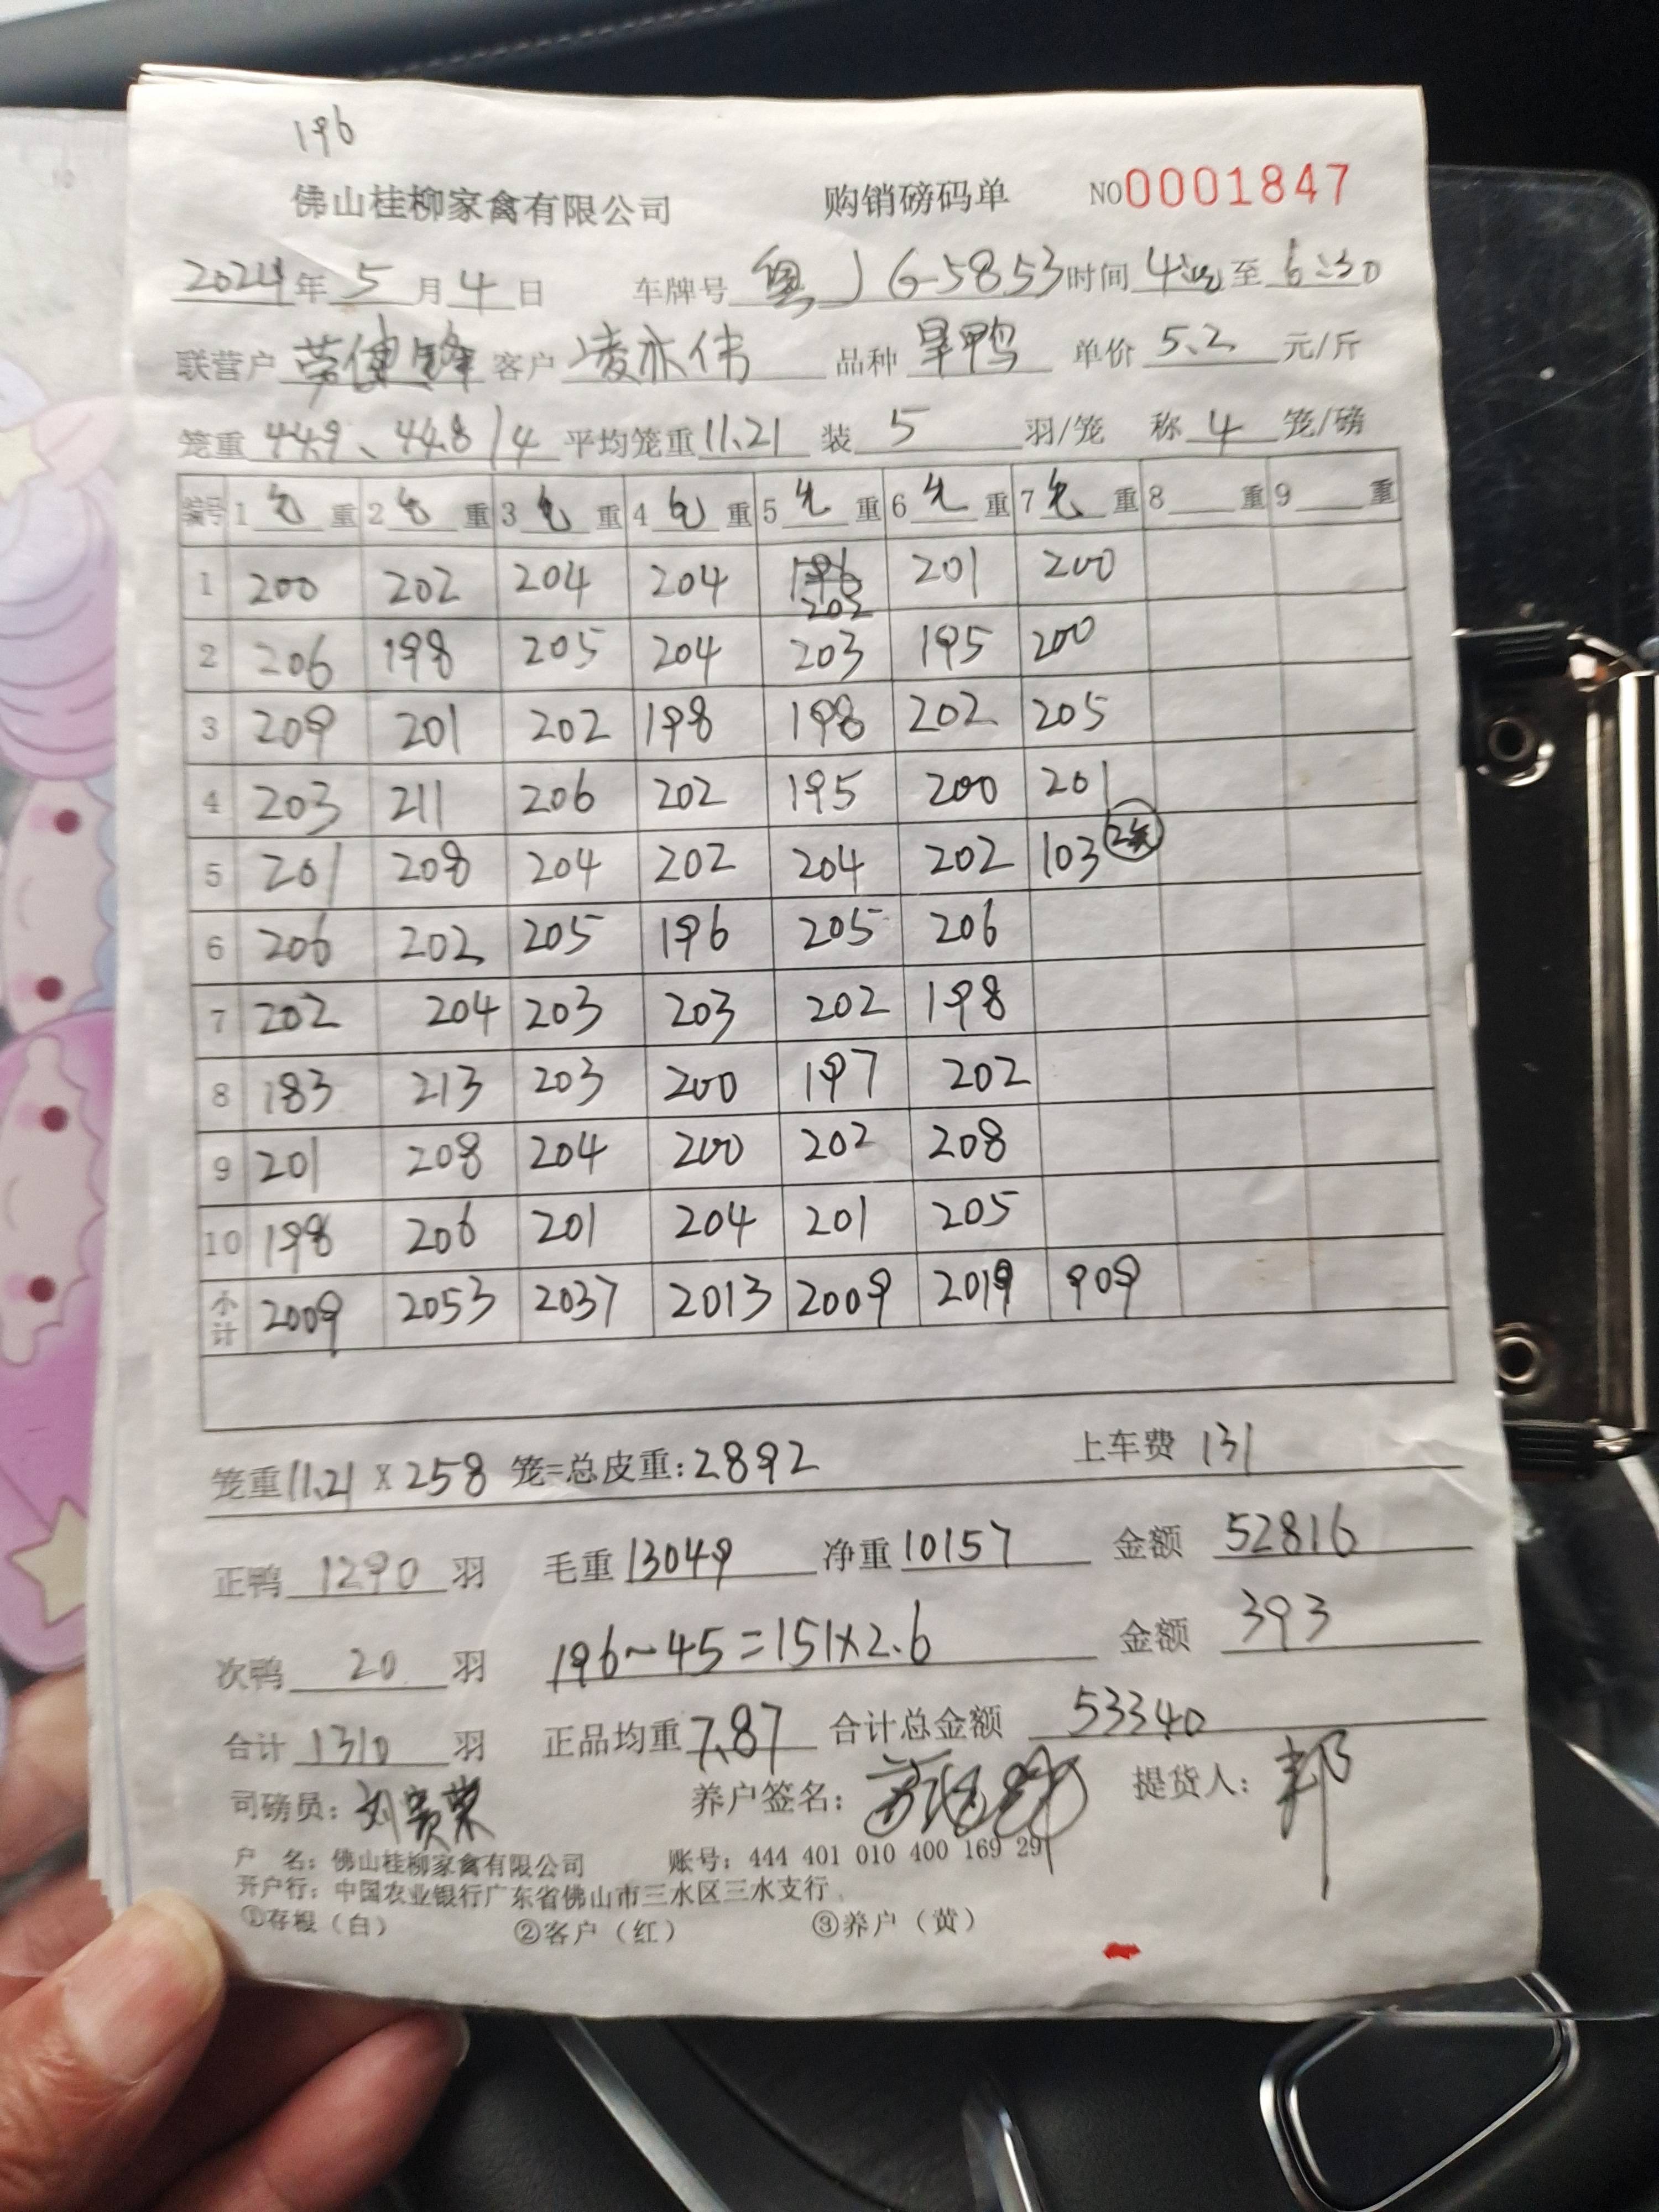 196
佛山桂柳家禽有限公司 购销磅码单 NO0001847
2024年5月4日 车牌号 粤JG5853 时间 至 6:30
联营户 客户 凌亦伟 品种 旱鸭 单价 5.2 元/斤
笼重 44.9、44.8/4 平均笼重 11.21 装 5 羽/笼 称 4 笼/磅
编号 1 毛 重 2 毛 重 3 毛 重 4 毛 重 5 毛 重 6 毛 重 7 毛 重 8 重 9 重
1 200 202 204 204 196 202 201 200
2 206 198 205 204 203 195 200
3 209 201 202 198 198 202 205
4 203 211 206 202 195 200 201
5 201 208 204 202 204 202 103 2笼
6 206 202 205 196 205 206
7 202 204 203 203 202 198
8 183 213 203 200 197 202
9 201 208 204 200 202 208
10 198 206 201 204 201 205
小计 2009 2053 2037 2013 2009 2019 909
笼重 11.21 X 258 笼=总皮重: 2892 上车费 131
正鸭 1290 羽 毛重 13049 净重 10157 金额 52816
次鸭 20 羽 196-45=151x2.6 金额 393
合计 1310 羽 正品均重 7.87 合计总金额 53340
司磅员: 养户签名: 提货人: 邦
户 名: 佛山桂柳家禽有限公司 账号: 444 401 010 400 169 291
开户行: 中国农业银行广东省佛山市三水区三水支行
①存根(白) ②客户(红) ③养户(黄)